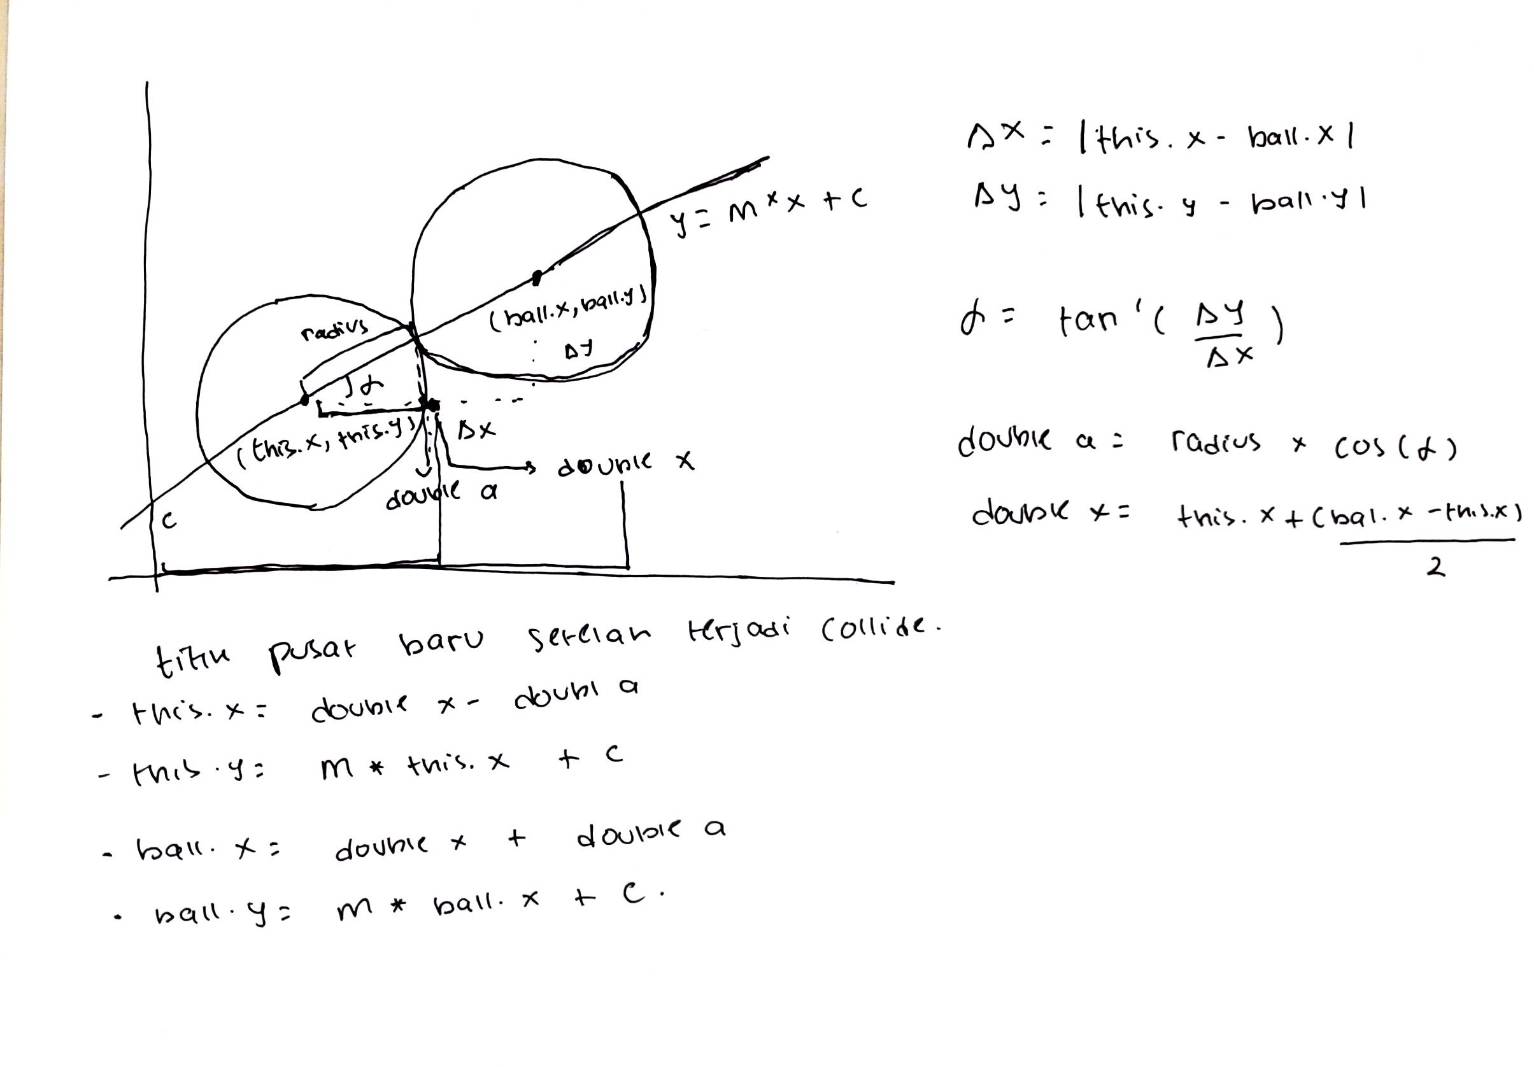 y = m * x + c
radius
(ball.x, ball.y)
Δy
α
(this.x, this.y)
Δx
double x
double a
c
Δx = |this.x - ball.x|
Δy = |this.y - ball.y|
α = tan'( Δy / Δx )
double a = radius * cos(α)
double x = this.x + (bal.x - this.x) / 2
titik pusat baru setelah terjadi collide.
- this.x = double x - doubl a
- this.y = m * this.x + c
- ball.x = double x + double a
- ball.y = m * ball.x + c.